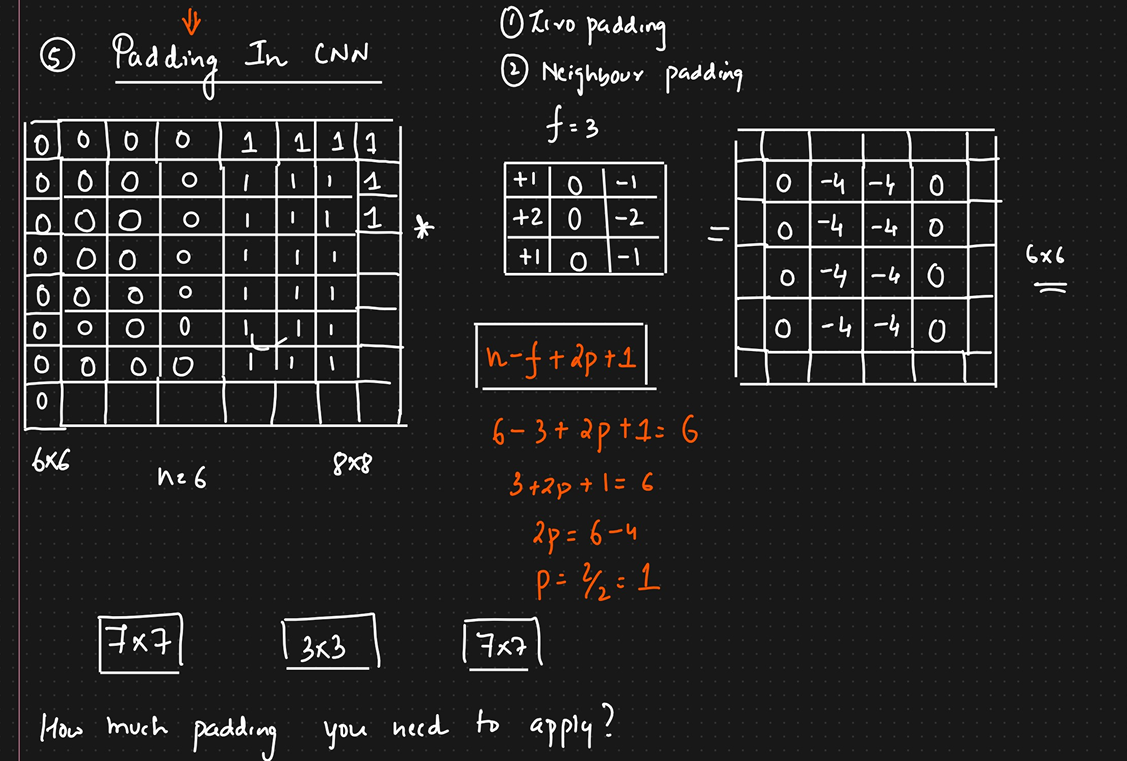 ⑤ Padding In CNN
① Zero padding
② Neighbour padding
f = 3
0 0 0 0 1 1 1 1
0 0 0 0 1 1 1 1
0 0 0 0 1 1 1 1
0 0 0 0 1 1 1
0 0 0 0 1 1 1
0 0 0 0 1 1 1
0 0 0 0 1 1 1
0
*
+1 0 -1
+2 0 -2
+1 0 -1
=
0 -4 -4 0
0 -4 -4 0
0 -4 -4 0
0 -4 -4 0
6x6
6x6
n=6
8x8
n-f+2p+1
6-3+2p+1=6
3+2p+1=6
2p=6-4
p=2/2=1
7x7 3x3 7x7
How much padding you need to apply?